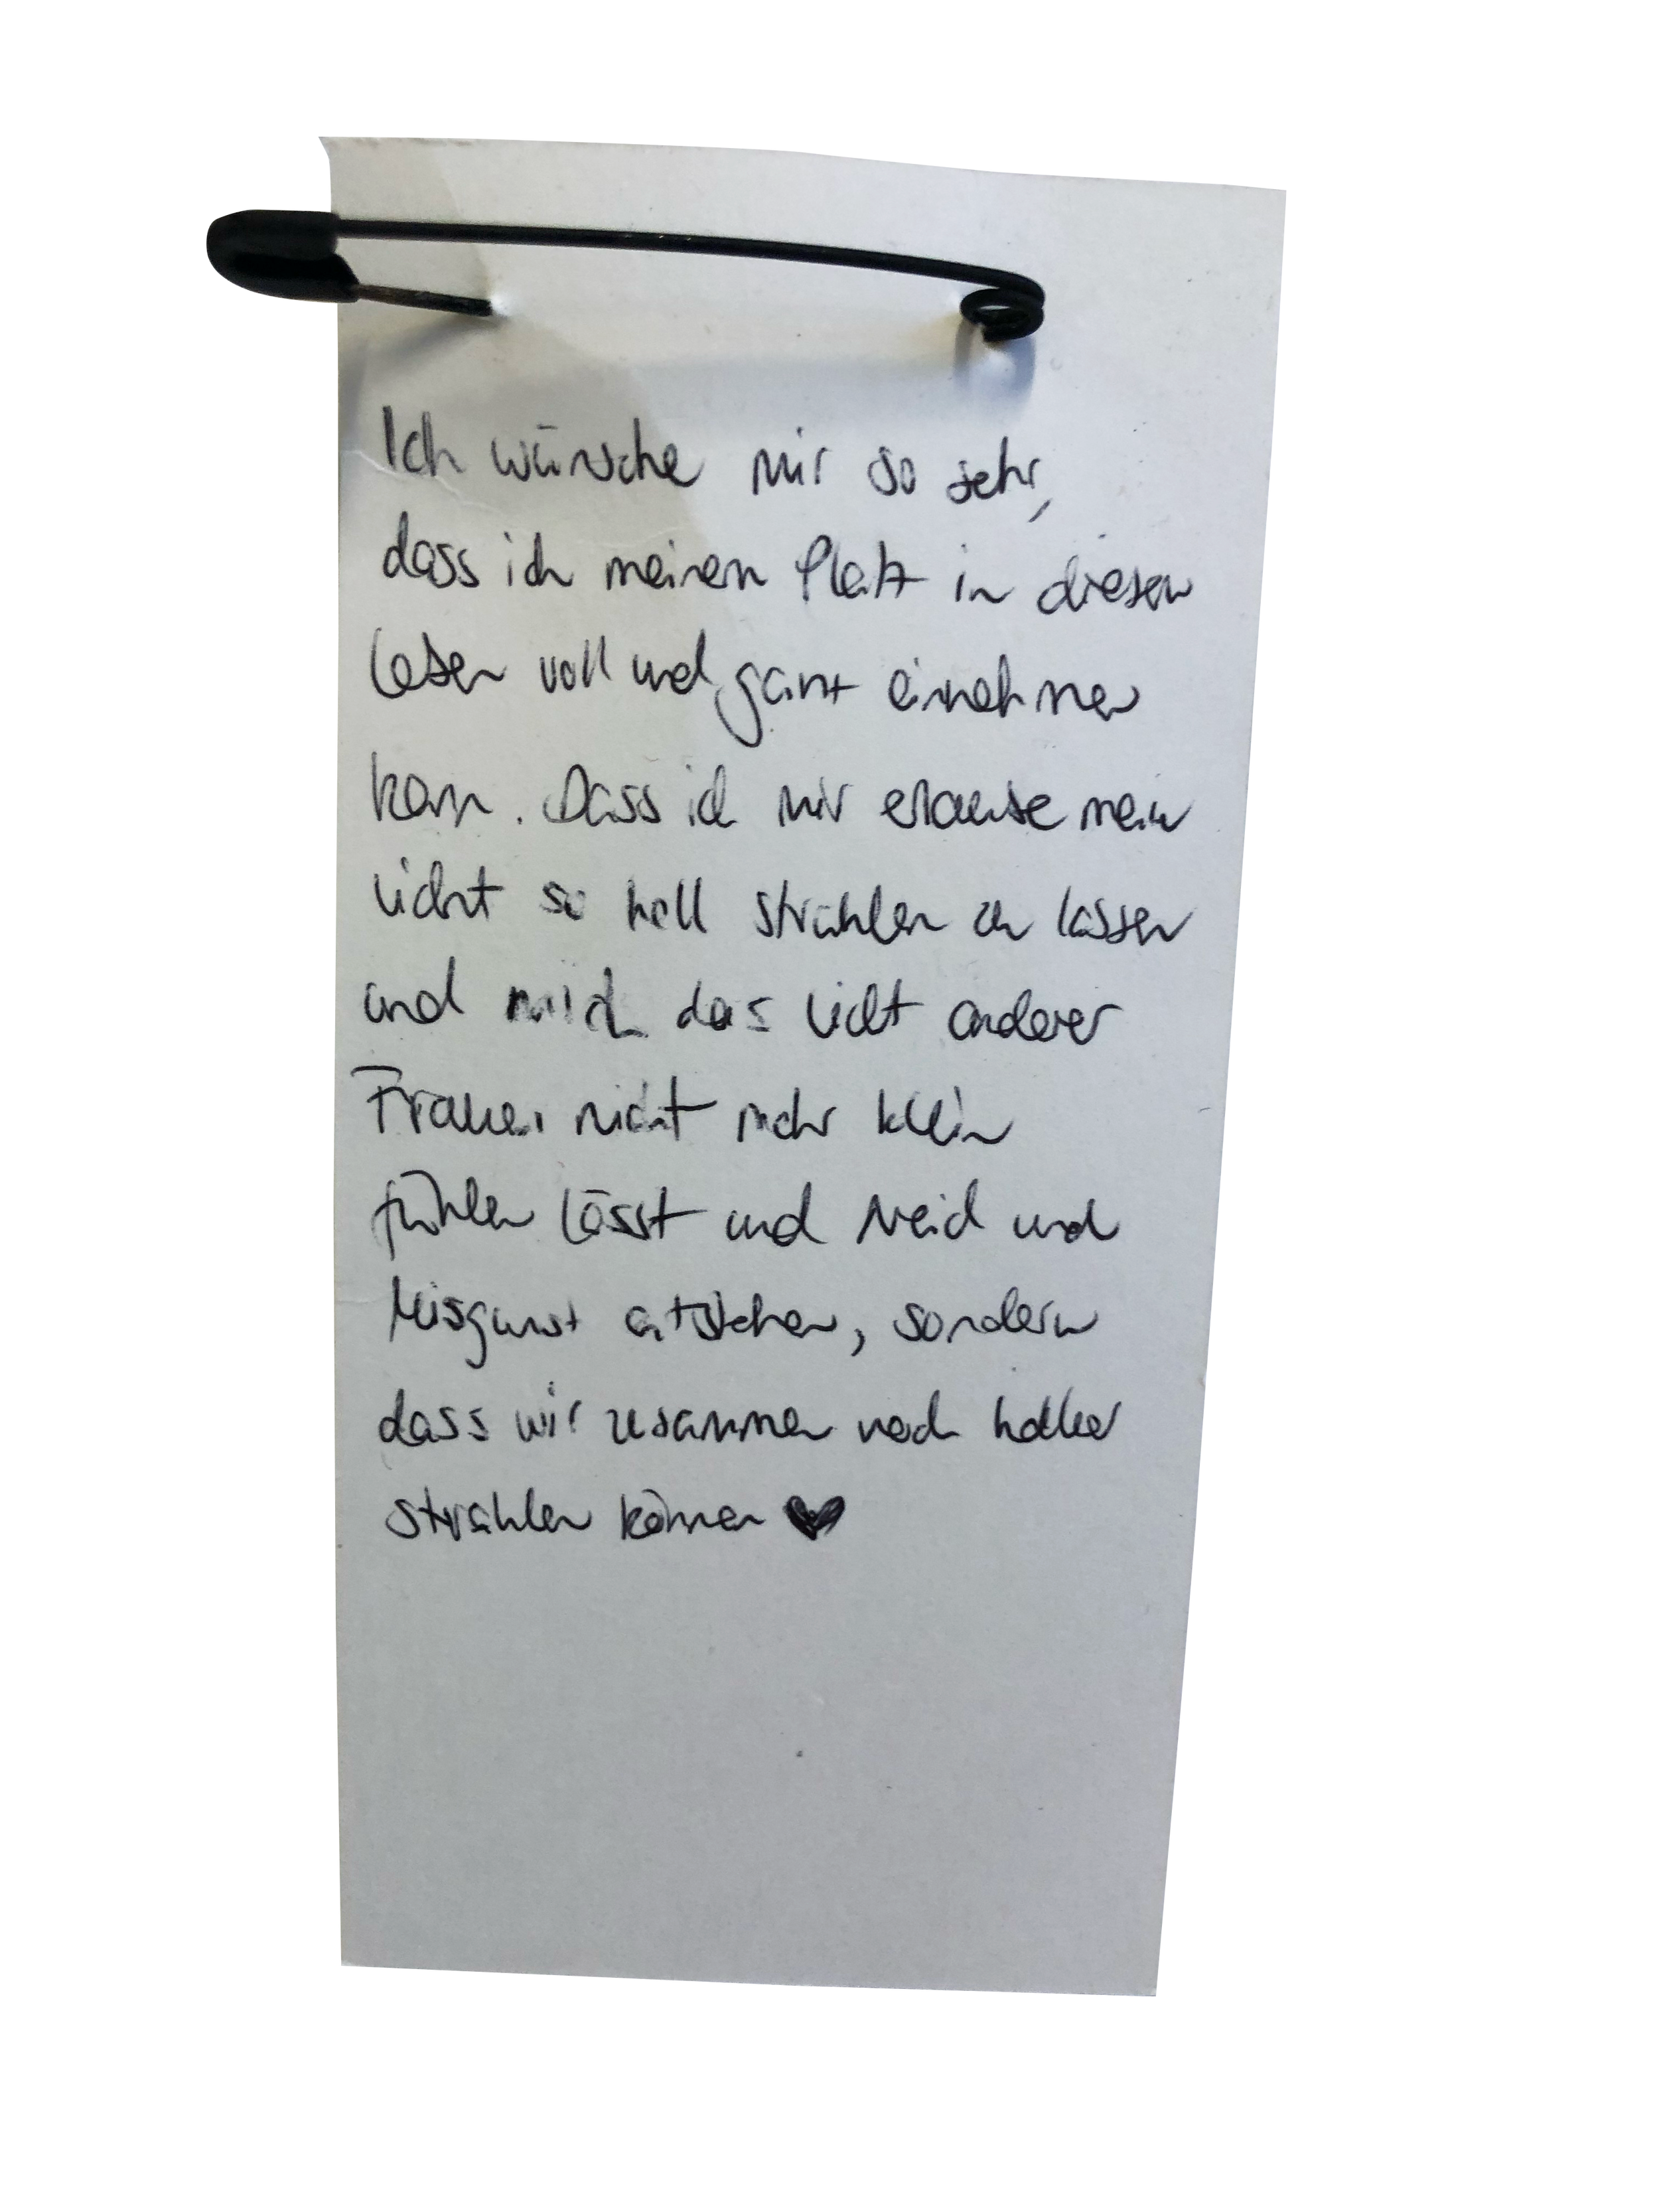 Ich wünsche mir so sehr,
dass ich meinen Platz in diesem
Leben voll und ganz einnehmen
kann. Dass ich mir erlaube mein
Licht so hell strahlen zu lassen
und mich das Licht anderer
Frauen nicht mehr klein
fühlen lässt und Neid und
Misgunst entstehen, sondern
dass wir zusammen noch heller
strahlen können ♥